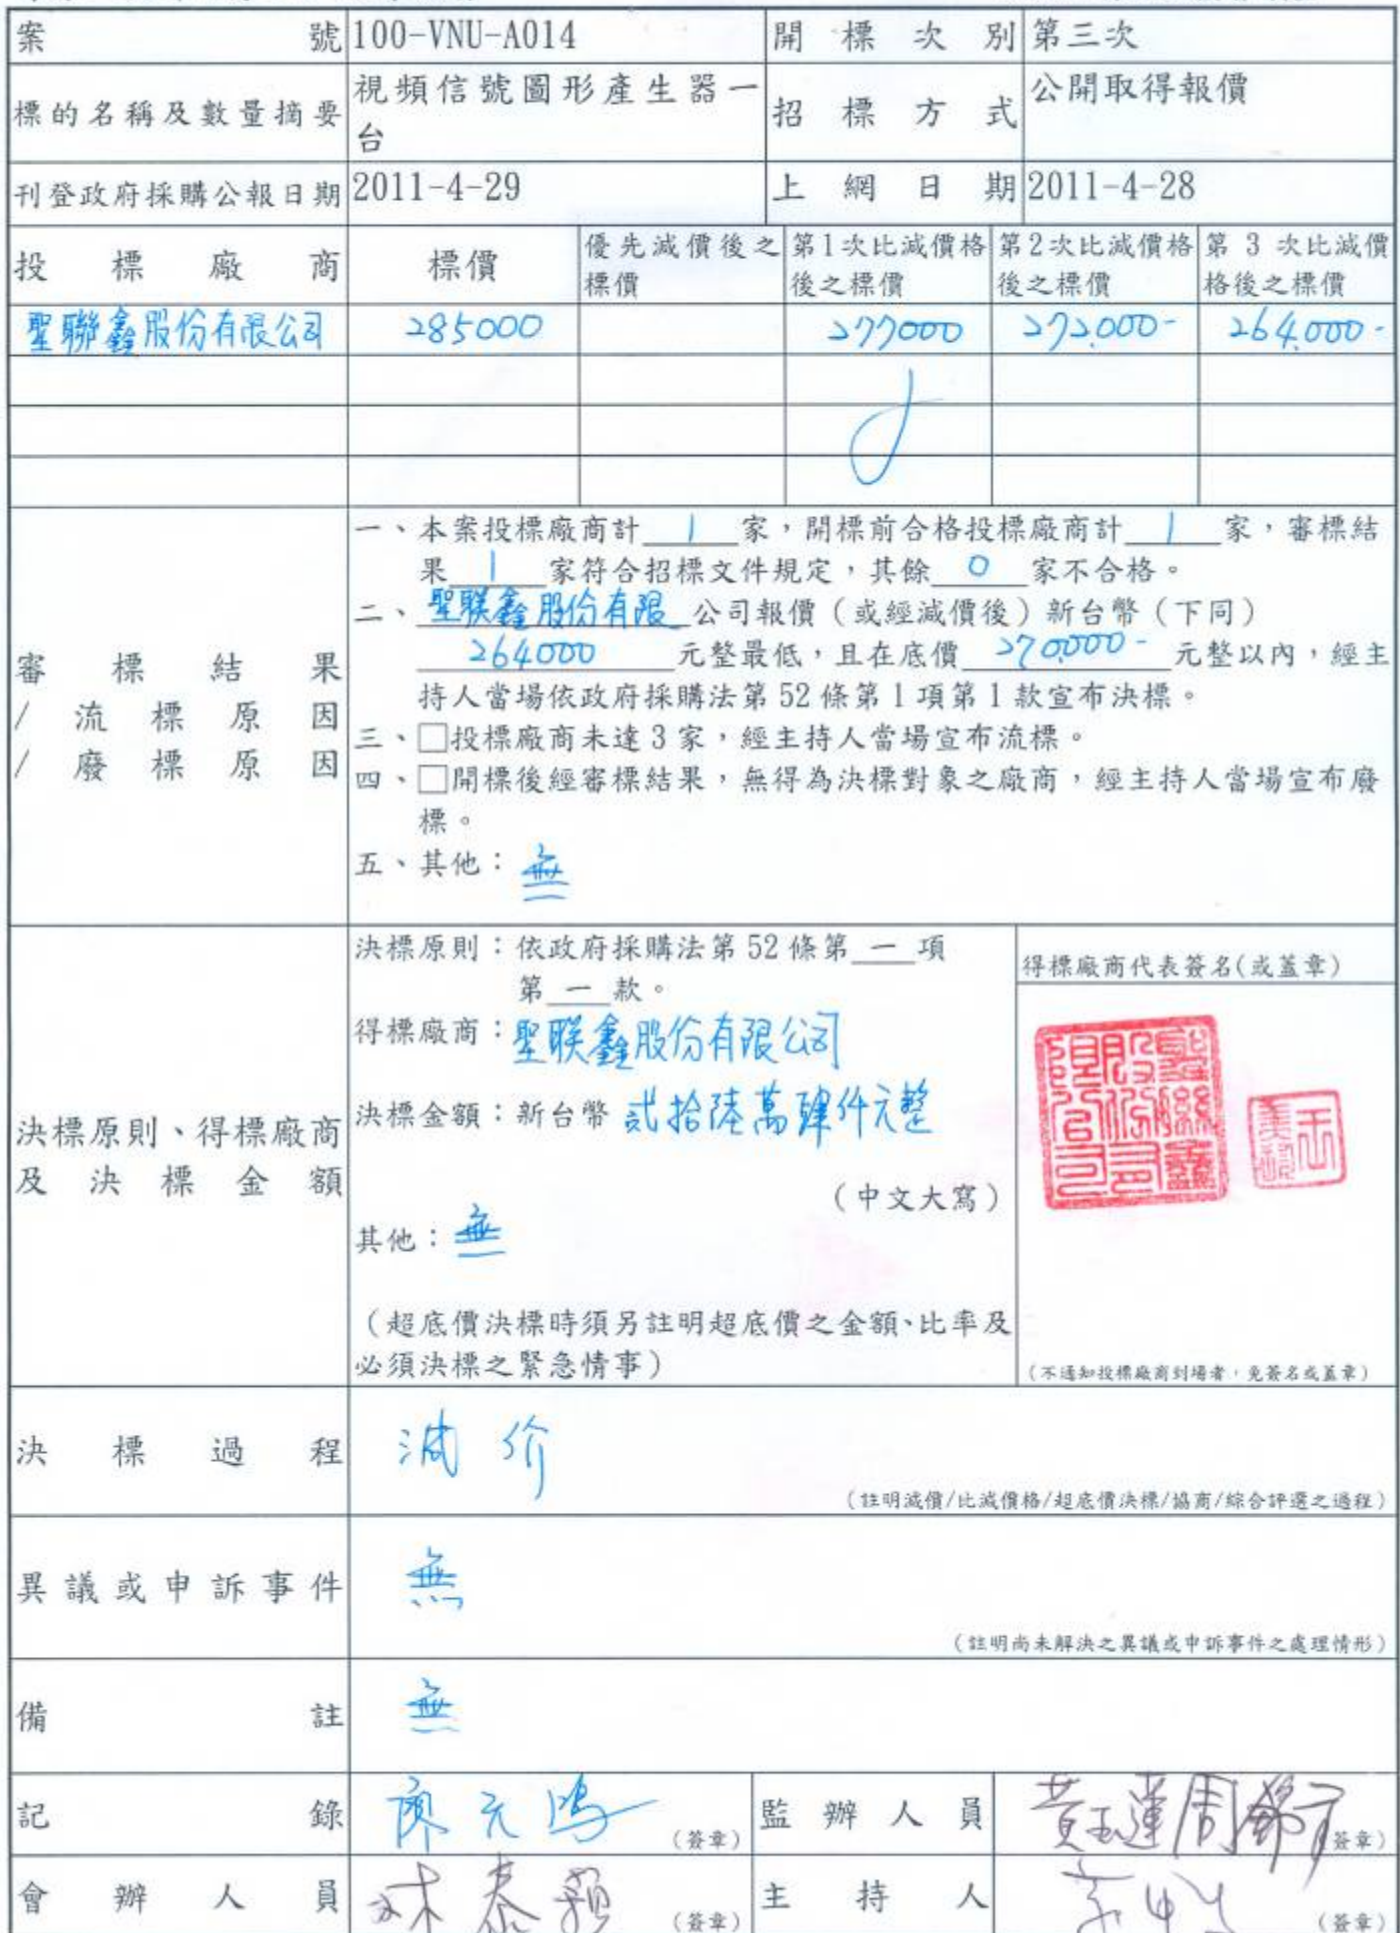 案號 100-VNU-A014 開標次別 第三次
標的名稱及數量摘要 視頻信號圖形產生器一台 招標方式 公開取得報價
刊登政府採購公報日期 2011-4-29 上網日期 2011-4-28
投標廠商 標價 優先減價後之標價 第1次比減價格後之標價 第2次比減價格後之標價 第3次比減價格後之標價
聖聯鑫股份有限公司 285000 277000 272,000- 264,000-
審標結果
/流標原因
/廢標原因
一、本案投標廠商計 1 家，開標前合格投標廠商計 1 家，審標結
果 1 家符合招標文件規定，其餘 0 家不合格。
二、聖联鑫股份有限公司報價（或經減價後）新台幣（下同）
264000 元整最低，且在底價 270,000- 元整以內，經主
持人當場依政府採購法第52條第1項第1款宣布決標。
三、□投標廠商未達3家，經主持人當場宣布流標。
四、□開標後經審標結果，無得為決標對象之廠商，經主持人當場宣布廢
標。
五、其他：無
決標原則、得標廠商
及決標金額
決標原則：依政府採購法第52條第一項
第一款。
得標廠商：聖联鑫股份有限公司
決標金額：新台幣 貳拾陸萬肆仟元整
（中文大寫）
其他：無
（超底價決標時須另註明超底價之金額、比率及
必須決標之緊急情事）
得標廠商代表簽名(或蓋章)
（不通知投標廠商到場者，免簽名或蓋章）
決標過程 減价
（註明減價/比減價格/超底價決標/協商/綜合評選之過程）
異議或申訴事件 無
（註明尚未解決之異議或申訴事件之處理情形）
備註 無
記錄 廖元鴻 （簽章） 監辦人員 黃玉蓮 （簽章）
會辦人員 （簽章） 主持人 （簽章）